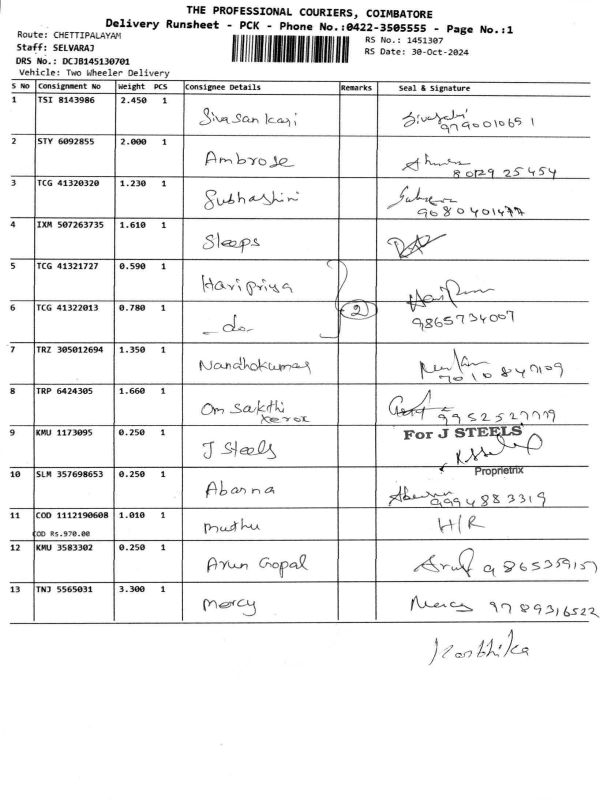 THE PROFESSIONAL COURIERS, COIMBATORE
Delivery Runsheet - PCK - Phone No.:0422-3505555 - Page No.:1
Route: CHETTIPALAYAM
RS No.: 1451307
Staff: SELVARAJ
RS Date: 30-Oct-2024
DRS No.: DCJB145130701
Vehicle: Two Wheeler Delivery
S No Consignment No Weight PCS Consignee Details Remarks Seal & Signature
1 TSI 8143986 2.450 1 Sivasankari
9790010651
2 STY 6092855 2.000 1 Ambrose
80129 25454
3 TCG 41320320 1.230 1 Subhashini
9080401477
4 IXM 507263735 1.610 1 Sleeps
5 TCG 41321727 0.590 1 Haripriya
6 TCG 41322013 0.780 1 -do- 2
9865734007
7 TRZ 305012694 1.350 1 Nandhakumar
7010847109
8 TRP 6424305 1.660 1 Om Sakthi
Xerox 9952527779
9 KMU 1173095 0.250 1 J Steels For J STEELS
Proprietrix
10 SLM 357698653 0.250 1 Abarna
9994883319
11 COD 1112190608 1.010 1 Muthu H/R
COD Rs.970.00
12 KMU 3583302 0.250 1 Arun Gopal Arun 9865359157
13 TNJ 5565031 3.300 1 Mercy Mercy 9789316522
Karthika